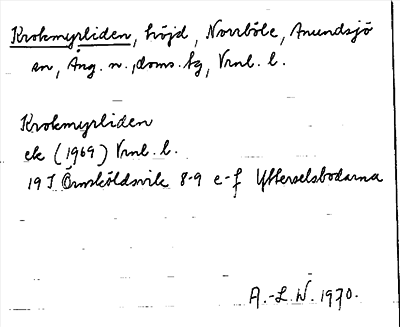 Krokmyrliden, höjd, Norrböle, Anundsjö
sn, Ång. n., doms. tg, Vrnl. l.
Krokmyrliden
ek (1969) Vrnl. l.
19 I Örnsköldsvik 8-9 e-f Ytterselsbodarna
A.-L. W. 1970.